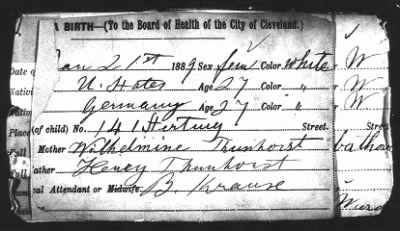 A BIRTH—(To the Board of Health of the City of Cleveland.)
Date of Jan 21st 1889 Sex fem Color white W
Nativi U. States Age 27 Color " W
Nativi Germany Age 27 Color " W
Place (of child) No. 141 Street.
Full Mother Wilhelmine Thunhorst
Full Father Henry Thunhorst
Attendant or Midwife, B. Krause